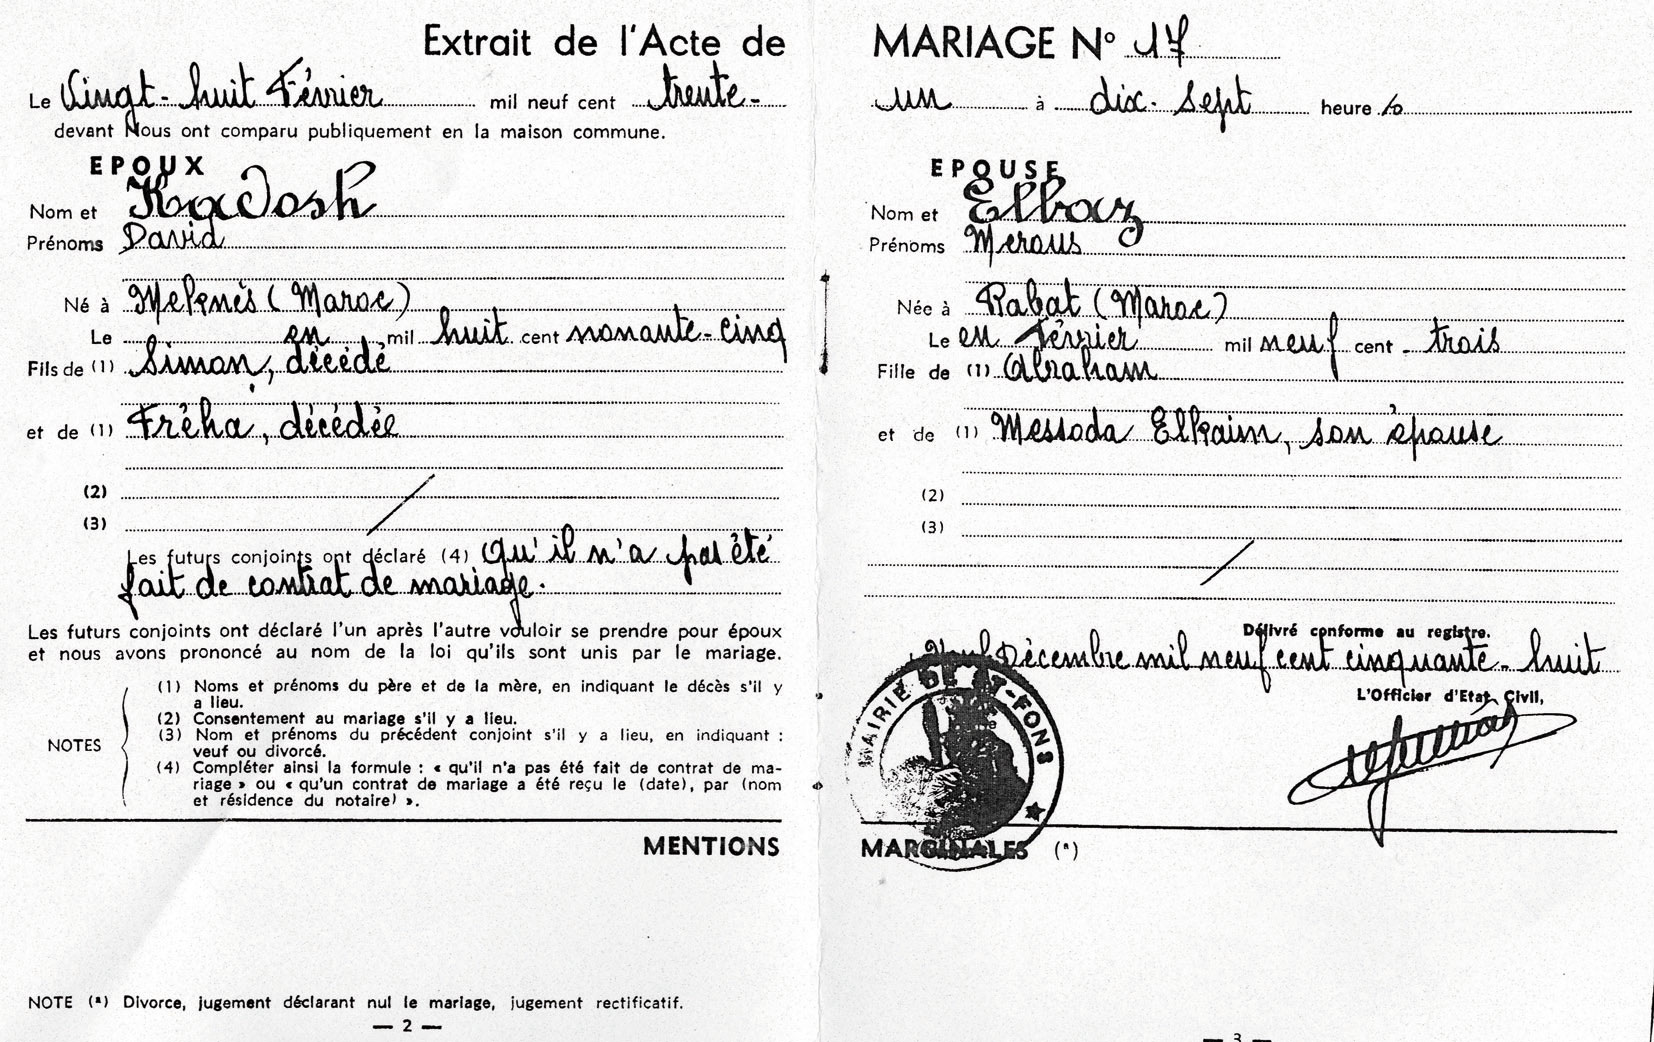 Extrait de l'Acte de MARIAGE N° 17
Le Vingt-huit Février mil neuf cent trente-
un à dix-sept heure s
devant Nous ont comparu publiquement en la maison commune.
EPOUX
Nom et Kadosh
Prénoms David
Né à Meknès (Maroc)
Le en mil huit cent nonante-cinq
Fils de (1) Simon, décédé
et de (1) Fréha, décédée
(2)
(3)
Les futurs conjoints ont déclaré (4) Qu'il n'a pas été
fait de contrat de mariage.
Les futurs conjoints ont déclaré l'un après l'autre vouloir se prendre pour époux
et nous avons prononcé au nom de la loi qu'ils sont unis par le mariage.
NOTES
(1) Noms et prénoms du père et de la mère, en indiquant le décès s'il y
a lieu.
(2) Consentement au mariage s'il y a lieu.
(3) Nom et prénoms du précédent conjoint s'il y a lieu, en indiquant :
veuf ou divorcé.
(4) Compléter ainsi la formule : « qu'il n'a pas été fait de contrat de ma-
riage » ou « qu'un contrat de mariage a été reçu le (date), par (nom
et résidence du notaire) ».
EPOUSE
Nom et Elbaz
Prénoms Meraus
Née à Rabat (Maroc)
Le en Février mil neuf cent trois
Fille de (1) Abraham
et de (1) Messoda Elkaim, son épouse
(2)
(3)
Délivré conforme au registre.
Neuf Décembre mil neuf cent cinquante-huit
L'Officier d'Etat Civil,
MAIRIE DE ST-FONS
MENTIONS MARGINALES (*)
NOTE (*) Divorce, jugement déclarant nul le mariage, jugement rectificatif.
— 2 —
— 3 —